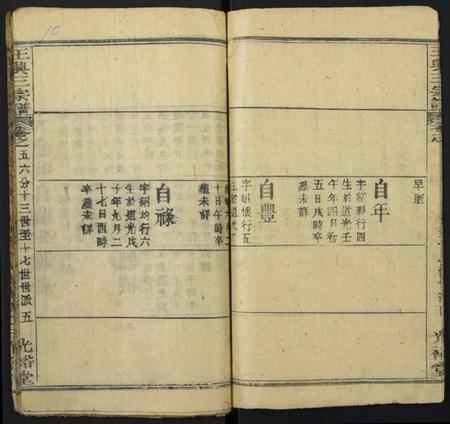 早逝
自年
字紹彩行四
生於道光壬
午年四日初
五日戌時卒
葬未詳
自豐
字紹懷行五
十日午時卒
葬未詳
自祿
字紹均行六
生於道光戊
子年九月二
十七日酉時
卒葬未詳
王興三宗譜
卷之五六分十三世至十七世世派
五
光裕堂
10